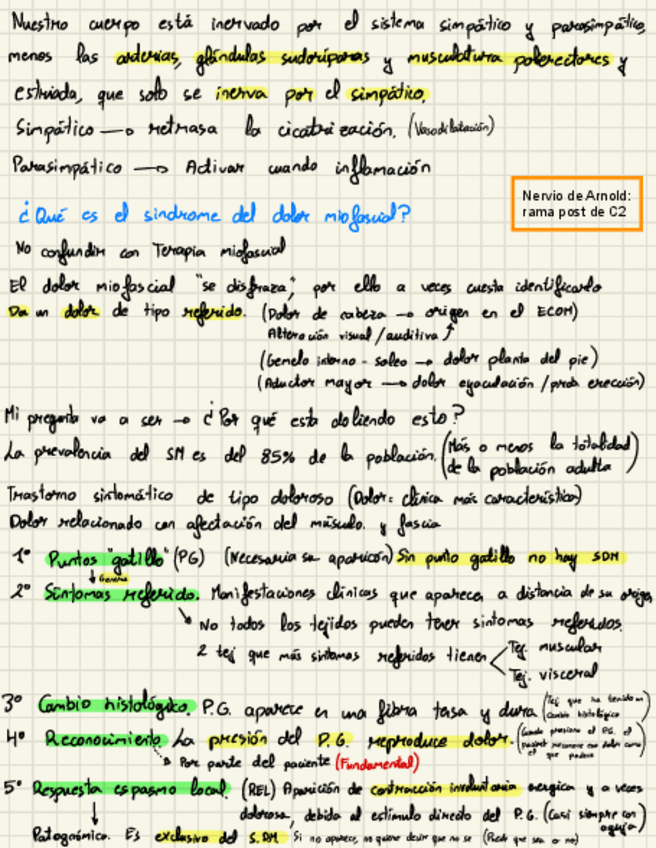 Nuestro cuerpo está inervado por el sistema simpático y parasimpático,
menos las arterias, glándulas sudoríparas y musculatura polerectores y
estriada, que solo se inerva por el simpático.
Simpático → retrasa la cicatrización. (Vasodilatación)
Parasimpático → Activar cuando inflamación
Nervio de Arnold:
rama post de C2
¿Qué es el sindrome del dolor miofascial?
No confundir con Terapia miofascial
El dolor miofascial "se disfraza", por ello a veces cuesta identificarlo
Da un dolor de tipo referido. (Dolor de cabeza → origen en el ECOM)
Alteración visual/auditiva
(Gemelo interno - soleo → dolor planta del pie)
(Aductor mayor → dolor eyaculación/prob erección)
Mi pregunta va a ser → ¿Por qué esta doliendo esto?
La prevalencia del SM es del 85% de la población. (Más o menos la totalidad
de la población adulta)
Trastorno sintomático de tipo doloroso (Dolor: clínica más característica)
Dolor relacionado con afectación del músculo y fascia
1º Puntos "gatillo" (PG) (Necesaria su aparición) Sin punto gatillo no hay SDM
Genera
2º Síntomas referido. Manifestaciones clínicas que aparecen a distancia de su origen
No todos los tejidos pueden tener sintomas referidos.
2 tej que más sintomas referidos tienen
Tej. muscular
Tej. visceral
3º Cambio histológico. P.G. aparece en una fibra tensa y dura (Tej que ha tenido un
cambio histológico)
4º Reconocimiento. La presión del P.G. reproduce dolor. (Cuando presiono el P.G. el
paciente reconoce ese dolor como
el que padece)
Por parte del paciente (Fundamental)
5º Respuesta espasmo local. (REL) Aparición de contracción involuntaria energica y a veces
dolorosa, debido al estímulo directo del P.G. (Casi siempre con
aguja)
Patognómica. Es exclusivo del S.DM Si no aparece, no quiere decir que no se (Puede que sea o no)